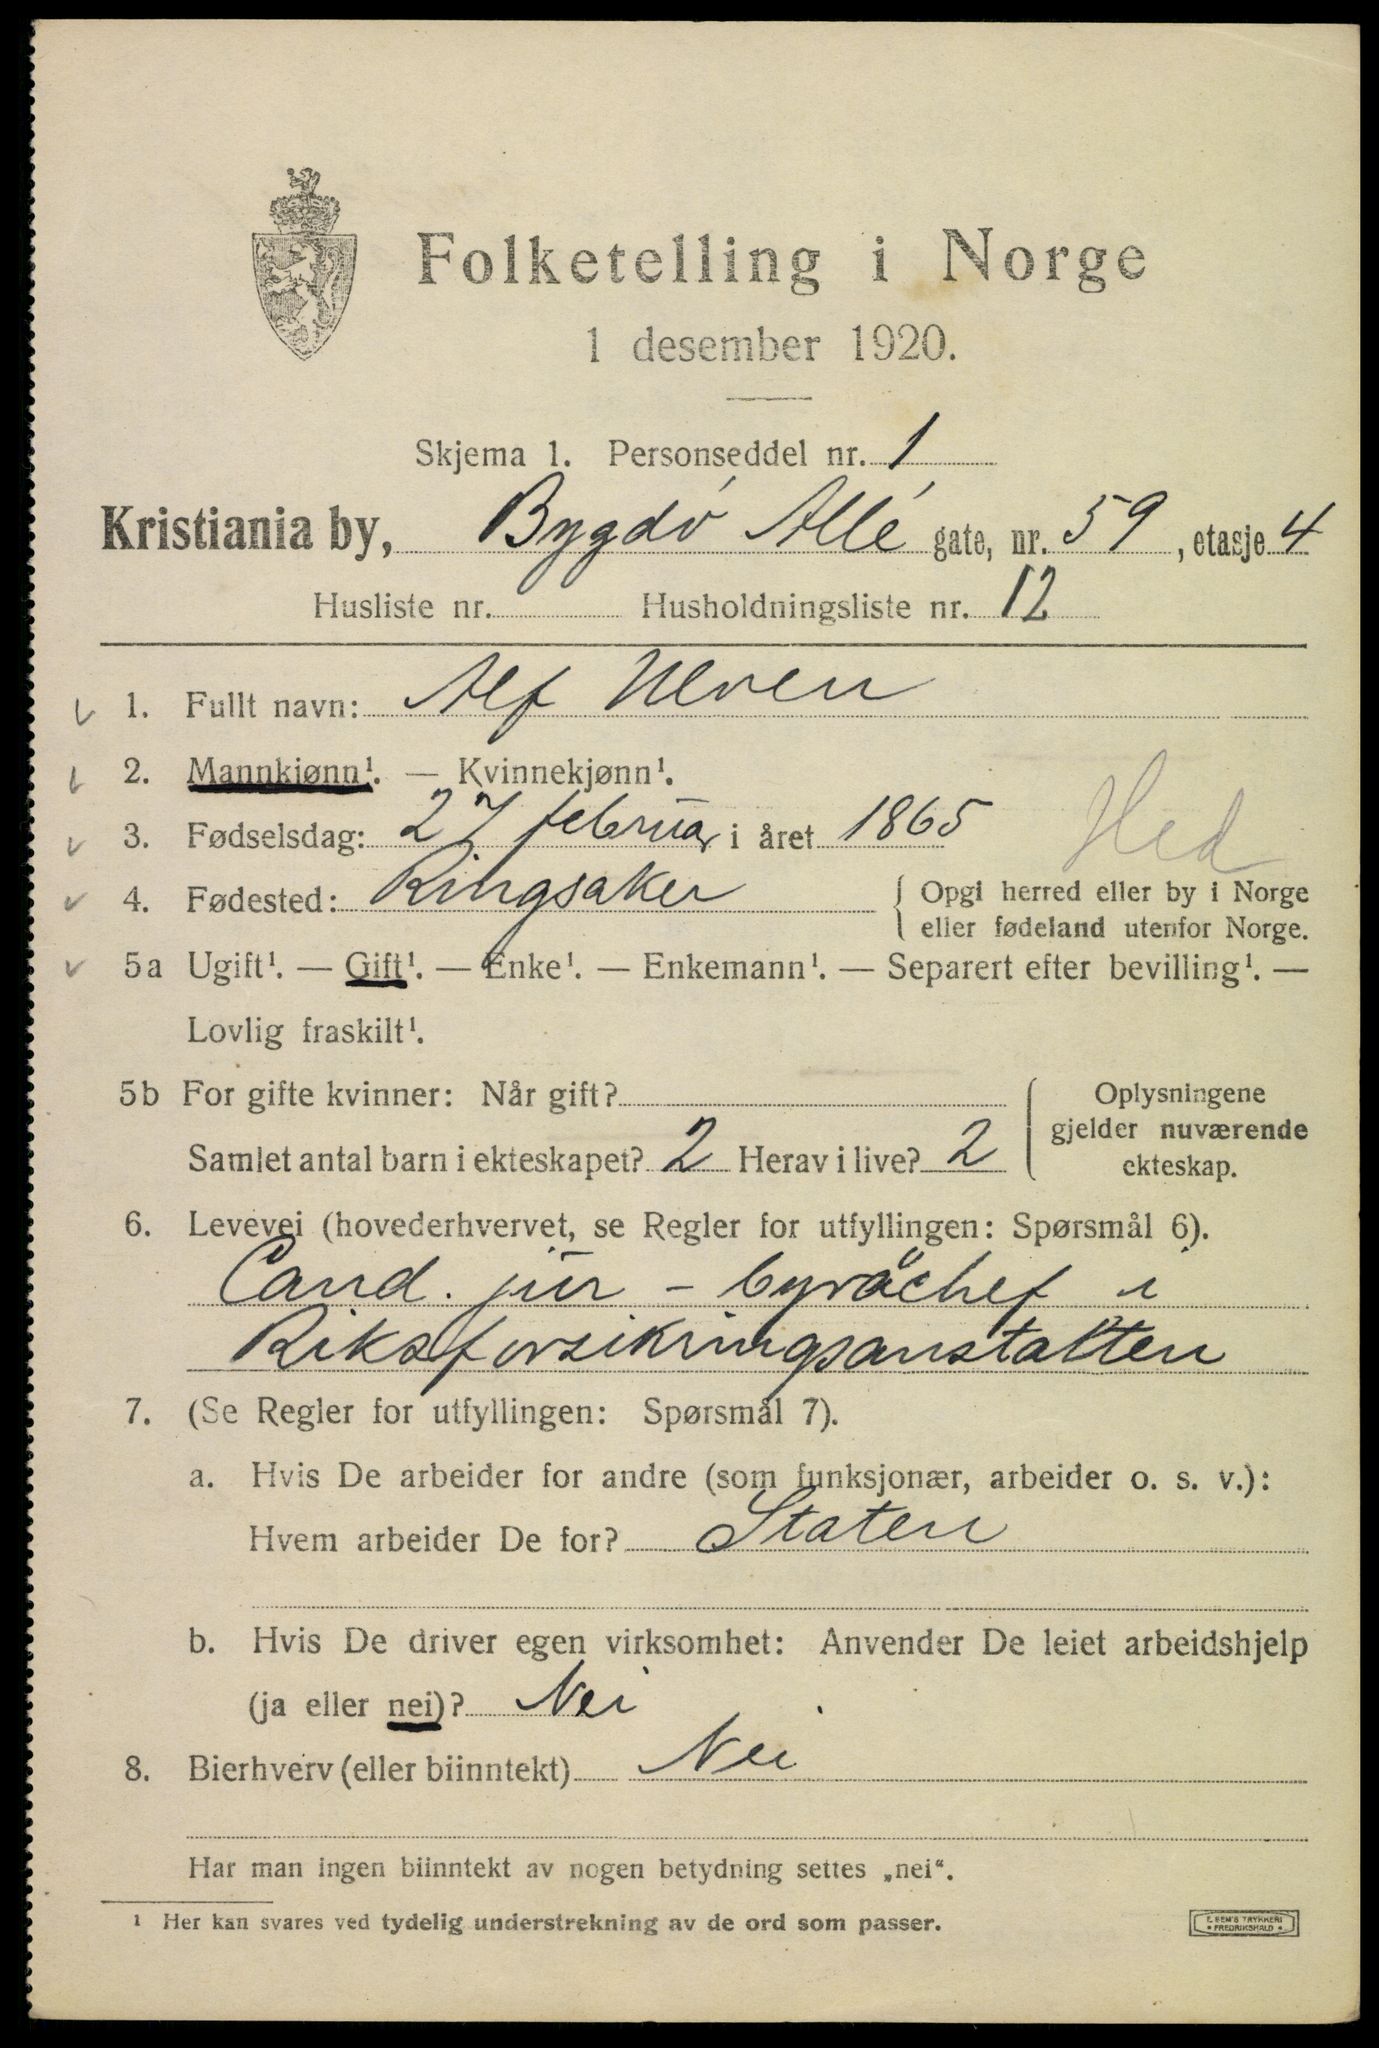 Folketelling i Norge
1 desember 1920.
Skjema 1. Personseddel nr. 1
Kristiania by, Bygdø Allé gate, nr. 59, etasje 4
Husliste nr. Husholdningsliste nr. 12
1. Fullt navn: Alf Ulven
2. Mannkjønn¹. — Kvinnekjønn¹.
3. Fødselsdag: 27 februar i året 1865
Hed
4. Fødested: Ringsaker { Opgi herred eller by i Norge
eller fødeland utenfor Norge.
5a Ugift¹. — Gift¹. — Enke¹. — Enkemann¹. — Separert efter bevilling¹. —
Lovlig fraskilt¹.
5b For gifte kvinner: Når gift?
Samlet antal barn i ekteskapet? 2 Herav i live? 2
Oplysningene
gjelder nuværende
ekteskap.
6. Levevei (hovederhvervet, se Regler for utfyllingen: Spørsmål 6).
Cand. jur - byråchef i
Riksforsikringsanstalten
7. (Se Regler for utfyllingen: Spørsmål 7).
a. Hvis De arbeider for andre (som funksjonær, arbeider o. s. v.):
Hvem arbeider De for? Staten
b. Hvis De driver egen virksomhet: Anvender De leiet arbeidshjelp
(ja eller nei)? Nei
8. Bierhverv (eller biinntekt) Nei
Har man ingen biinntekt av nogen betydning settes „nei“.
¹ Her kan svares ved tydelig understrekning av de ord som passer.
E. SEM'S TRYKKERI
• FREDRIKSHALD •